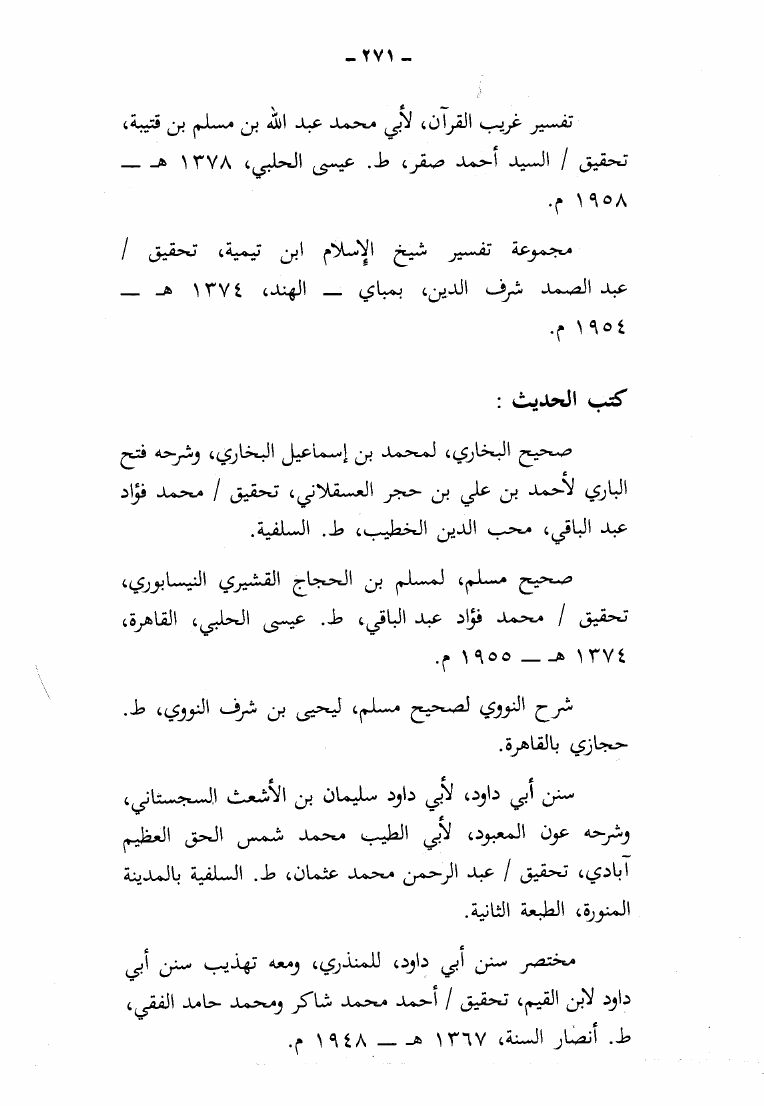 - ٢٧١ -
تفسير غريب القرآن، لأبي محمد عبد الله بن مسلم بن قتيبة،
تحقيق / السيد أحمد صقر، ط. عيسى الحلبي، ١٣٧٨ هـ —
١٩٥٨ م.
مجموعة تفسير شيخ الإسلام ابن تيمية، تحقيق /
عبد الصمد شرف الدين، بمباي — الهند، ١٣٧٤ هـ —
١٩٥٤ م.
كتب الحديث :
صحيح البخاري، لمحمد بن إسماعيل البخاري، وشرحه فتح
الباري لأحمد بن علي بن حجر العسقلاني، تحقيق / محمد فؤاد
عبد الباقي، محب الدين الخطيب، ط. السلفية.
صحيح مسلم، لمسلم بن الحجاج القشيري النيسابوري،
تحقيق / محمد فؤاد عبد الباقي، ط. عيسى الحلبي، القاهرة،
١٣٧٤ هـ — ١٩٥٥ م.
شرح النووي لصحيح مسلم، ليحيى بن شرف النووي، ط.
حجازي بالقاهرة.
سنن أبي داود، لأبي داود سليمان بن الأشعث السجستاني،
وشرحه عون المعبود، لأبي الطيب محمد شمس الحق العظيم
آبادي، تحقيق / عبد الرحمن محمد عثمان، ط. السلفية بالمدينة
المنورة، الطبعة الثانية.
مختصر سنن أبي داود، للمنذري، ومعه تهذيب سنن أبي
داود لابن القيم، تحقيق / أحمد محمد شاكر ومحمد حامد الفقي،
ط. أنصار السنة، ١٣٦٧ هـ — ١٩٤٨ م.